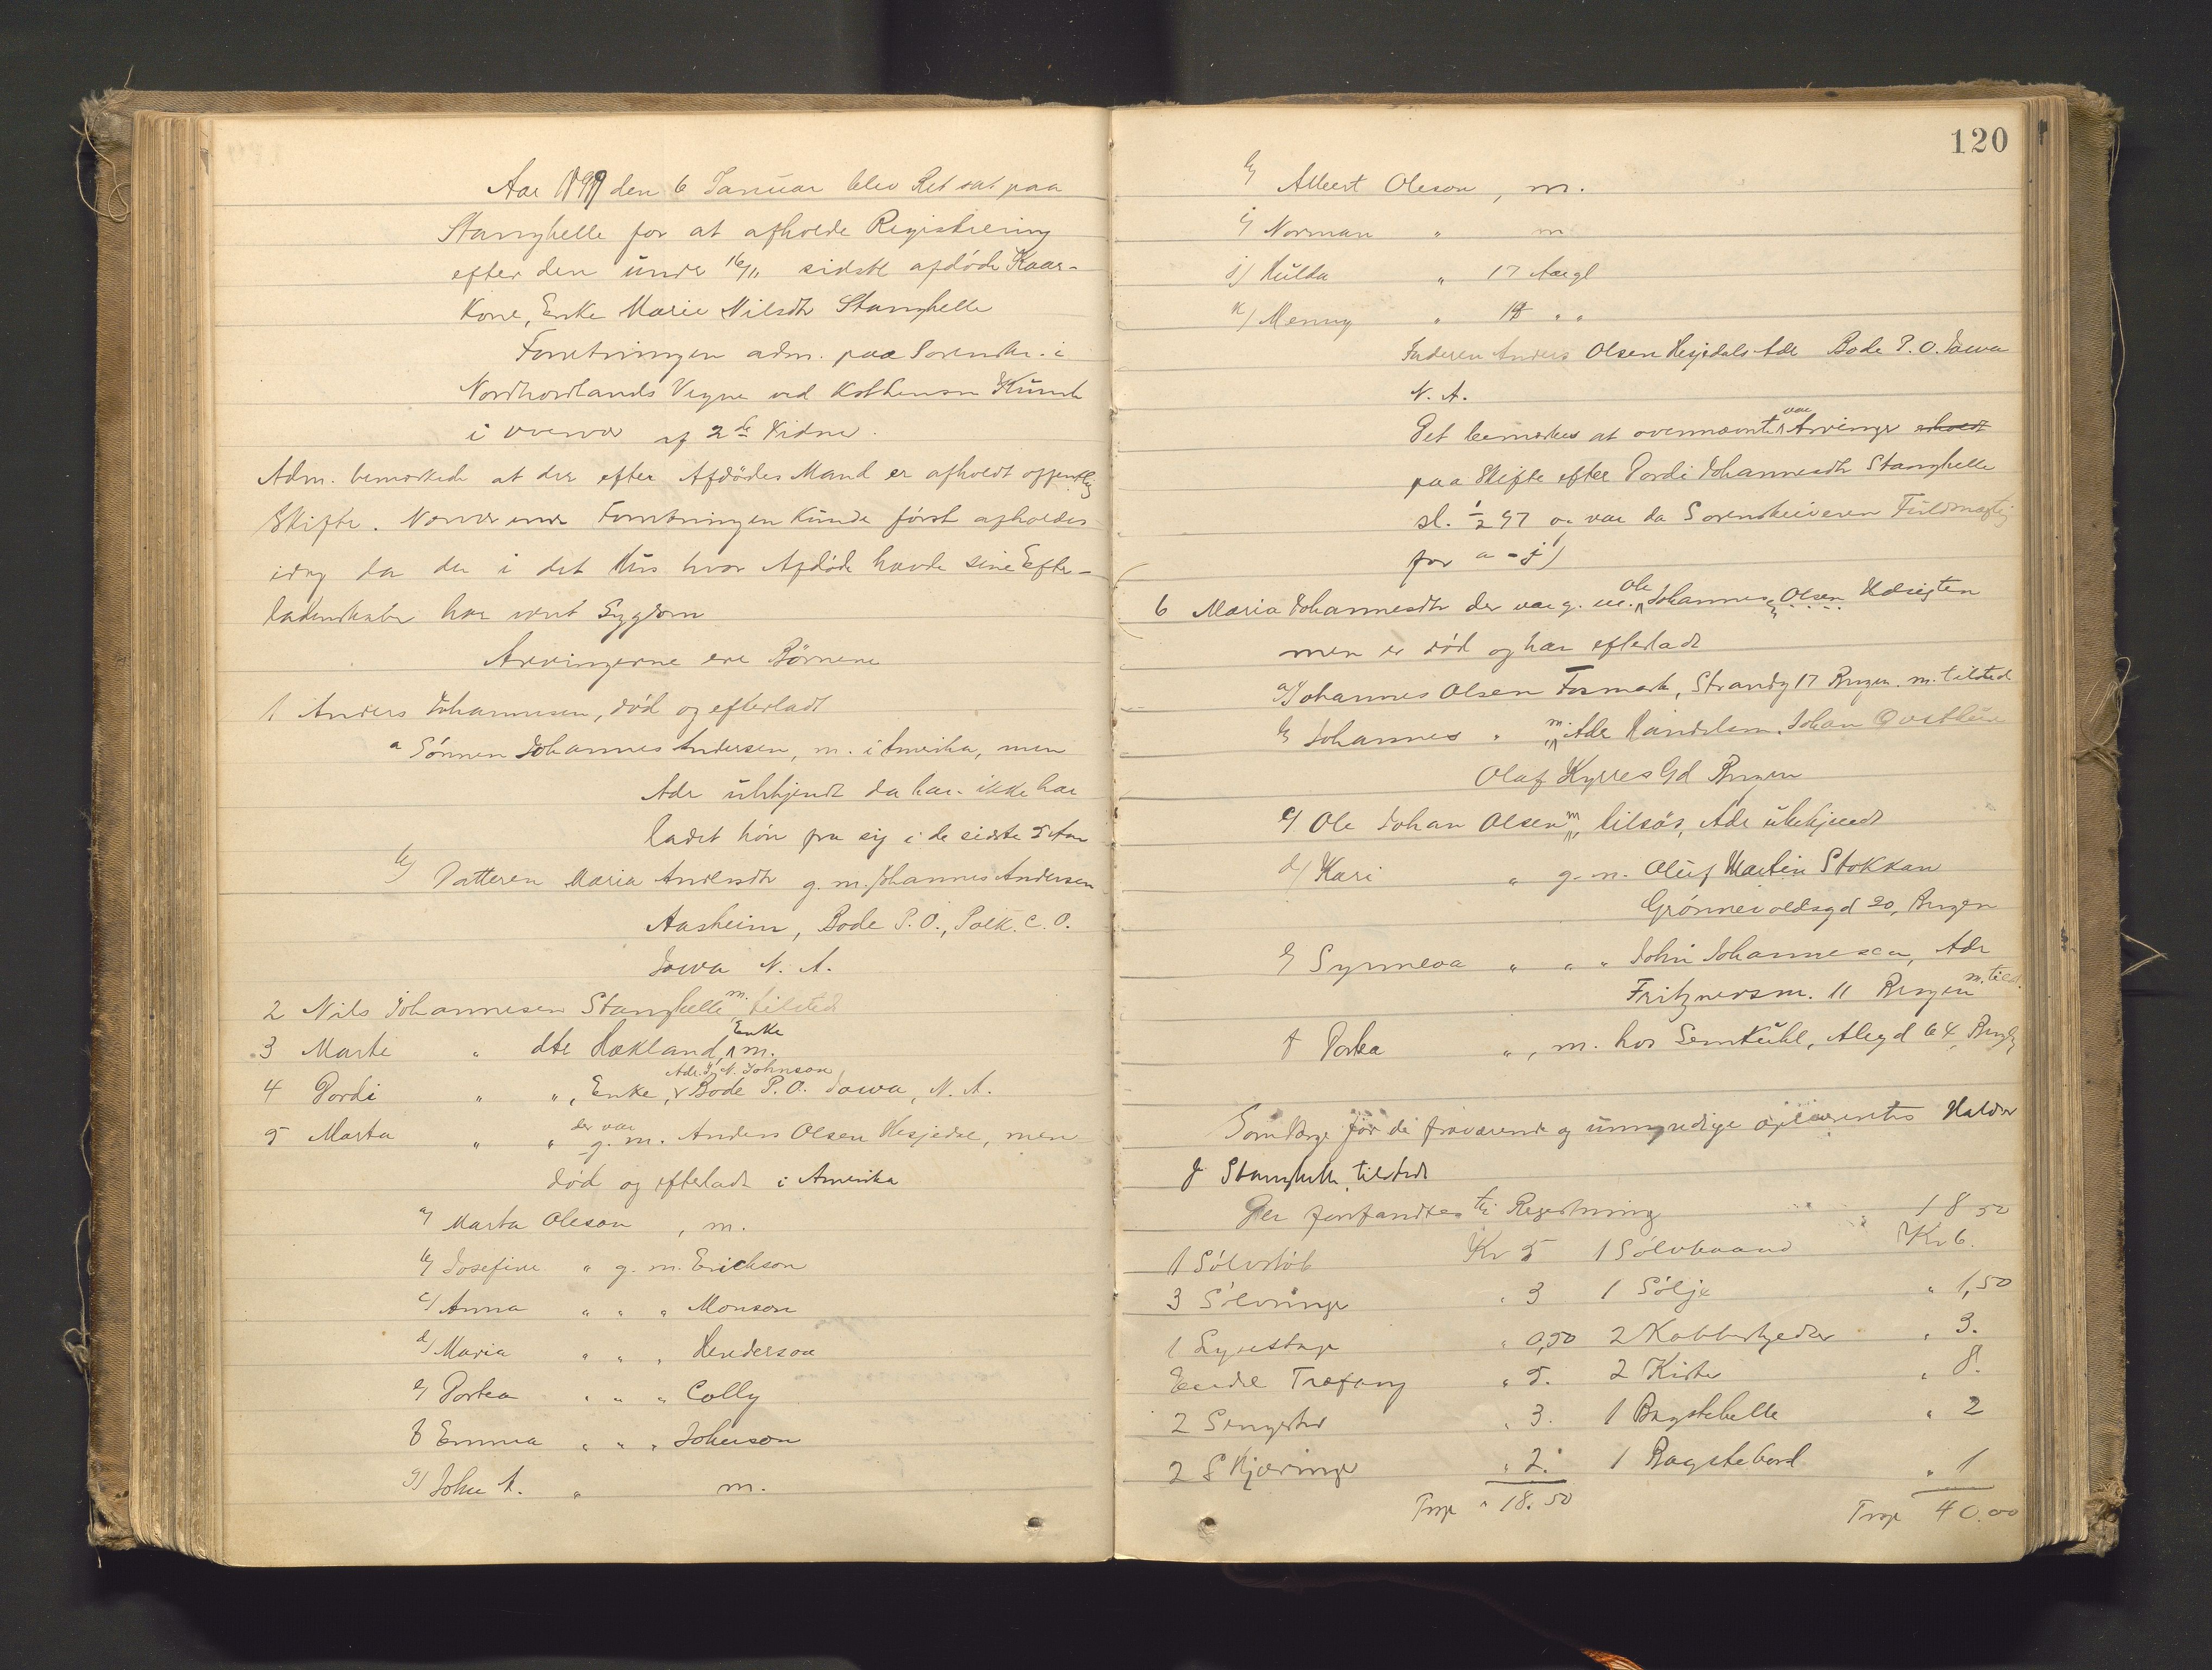 Aar 1899 den 6 Januar blev Ret sat paa
Stanghelle for at afholde Registrering
efter den under 16/11 sidstl afdöde Kaar-
kone, Enke Marie Nilsdtr Stanghelle
Forretningen adm. paa Sorenskr. i
Nordhordlands Vegne ved Kst Lensm
i overvær af 2de Vidner.
Adm. bemærkede at der efter Afdödes Mand er afholdt offentlig
Skifte. Nærværende Forretningen kunde först afholdes
idag da der i det Hus hvor Afdöde havde sine Efter-
ladenskaber har været Sygdom
Arvingerne ere Börnene
1 Anders Johannesen, död og efterladt
a Sönnen Johannes Andersen, m. i Amerika, men
Adr ubekjendt da han ikke har
ladet höre fra sig i de sidste 5 Aar
b/ Datteren Maria Andersdtr g. m. Johannes Andersen
Aasheim, Bode P.O., Polk. C. O.
Iowa N. A.
2 Nils Johannesen Stanghelle, m. tilsted
3 Marte " dtr Hækland, Enke m.
4 Dordi " ", Enke, Adr. N. Johnson Bode P.O. Iowa, N. A.
5 Marta " " der var g. m. Anders Olsen Hesjedal, men
död og efterladt i Amerika
a/ Marta Oleson, m.
b/ Josefine " g. m. Erickson
c/ Anna " " " Monson
d/ Maria " " " Henderson
e/ Dortea " " " Colly
f Emma " " " Johnson
g/ John A. " m.
120
h/ Albert Oleson, m.
i/ Norman " m
j/ Hulda " 17 Aargl
k/ Menny " 14 " "
Faderen Anders Olsen Hesjedals Adr Bode P.O. Iowa
N. A.
Det bemærkes at ovennævnte var Arvinger
paa Skifte efter Dordi Johannesdtr Stanghelle
sl. 1/2 97 og var da Sorenskriveren Fuldmægtig
for a - j/
6 Maria Johannesdtr der var g. m. Ole Johannes Olsen
men er död og har efterladt
a/ Johannes Olsen Fosmark, Strandg 17 Bergen. m. tilsted
b/ Johannes " m. Adr Handelsm. Johan
Olaf Kyrres Gd Bergen
c/ Ole Johan Olsen m, tilsös, Adr ubekjendt
d/ Kari " g. m. Oluf Martin Stokkan
Grönnevoldsgd 20, Bergen
e/ Synneva " " " John Johannesen, Adr
Fritznersm. 11 Bergen m. tilst.
f Dortea ", m. hos Kuhl, Alegd 64, Bergen
Som Værge for de fraværende og umyndige opnævntes Halder
J Stanghelle, tilstede
Der forefandtes til Registrering " " 18 50
1 Sölvstöb Kr 5 1 Sölvbaand Kr 6.
3 Sölvringe " 3 1 Sölje " 1,50
1 Lysestage " 0,50 2 Kobberkjedler " 3.
Endel Træfang " 5. 2 Kister " 8.
2 Sengesteder " 3. 1 Bagstehelle " 2
2 Skjæringer " 2. 1 Bagstebord " 1
Trsp " 18.50 Trsp 40.00